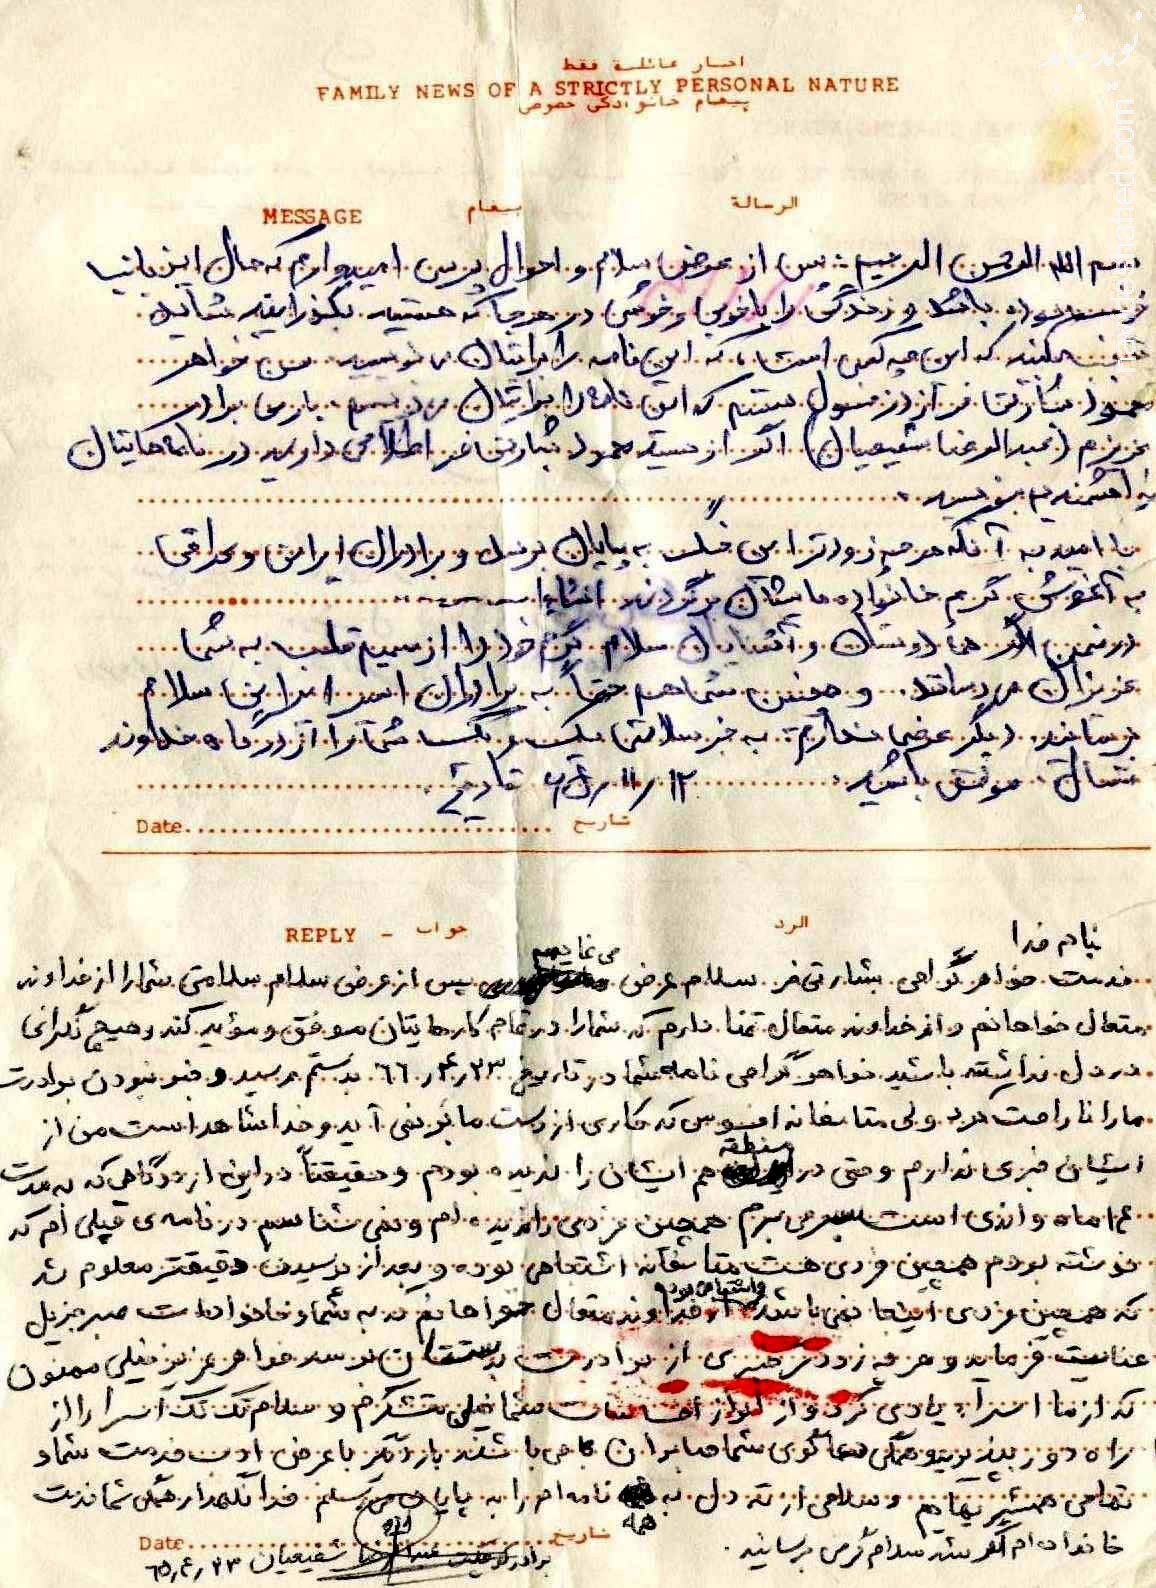 اخبار عائلية فقط
FAMILY NEWS OF A STRICTLY PERSONAL NATURE
پیغام خانوادگی خصوصی
MESSAGE پیغام الرسالة
بسم الله الرحمن الرحیم: پس از عرض سلام و احوال پرسی امیدوارم که حال این جانب
باشد و زندگی را با خوبی و خوشی در هر جا که هستید بگذرانید شاید
که این چه کسی است، که این نامه را برایتان می نویسد. من خواهر
بشارتی فر از دزفول هستم که این نامه را برایتان می نویسم. باری برادر
عزیزم (عبدالرضا شفیعیان) اگر از سید محمود بشارتی فر اطلاعی دارید در نامه هایتان
بنویسید.
با امید به آنکه هر چه زودتر این جنگ به پایان برسد و برادران ایرانی و عراقی
به آغوش گرم خانواده هایشان برگردند انشاءا...
در ضمن اکثر همه دوستان و آشنایان سلام گرم خود را از صمیم قلب به شما
عزیزان می رسانند. و همچنین شما هم حتماً به برادران اسیر ایرانی سلام
برسانید. دیگر عرضی ندارم به جز سلامتی یک یک شما را از درگاه خداوند
متعال. موفق باشید. تاریخ
Date تاريخ
REPLY - جواب الرد
بنام خدا
خدمت خواهر گرامی بشارتی فر سلام عرض می نمایم پس از عرض سلام سلامتی شما را از خداوند
متعال خواهانم و از خداوند متعال تمنا دارم که شما را در تمام کارهایتان موفق و مؤید کند و هیچ نگرانی
در دل نداشته باشید خواهر گرامی نامه شما در تاریخ ۶۶٫۴٫۲۳ بدستم رسید و خبر نبودن برادرت
مارا ناراحت کرد ولی متاسفانه افسوس که کاری از دست ما بر نمی آید و خدا شاهد است من از
ایشان خبری ندارم و حتی در منطقه هم ایشان را ندیده بودم و حقیقتاً در این اردوگاهی که به مدت
ماه واندی است بسر می برم همچین فردی را ندیده ام و نمی شناسم در نامه ی قبلی ام که
نوشته بودم همچین فردی هست متاسفانه اشتباهی بوده و بعد از پرسیدن دقیقتر معلوم شد
که همچین فردی اینجا نمی باشد و اشتباهی بوده از خداوند متعال خواهانم که به شما و خانواده ات صبر جزیل
عنایت فرماید و هر چه زودتر خبری از برادرت بدستتان برسد خواهر عزیز خیلی ممنون
که از ما اسرا یادی کردو از ابراز احساسات شما خیلی متشکرم و سلام تک تک اسرا را از
راه دور بپذیرید و همگی دعا گوی شما صابران می باشند بار دیگر با عرض ادب خدمت شما و
تمامی همشیریهایم و سلامی از ته دل به همه نامه ام را به پایان می رسانم خدا نگهدار همگی شما خدمت
خانواده ام اگر شد سلام گرمی برسانید.
Date تاريخ
شفیعیان ۶۵٫۴٫۲۳